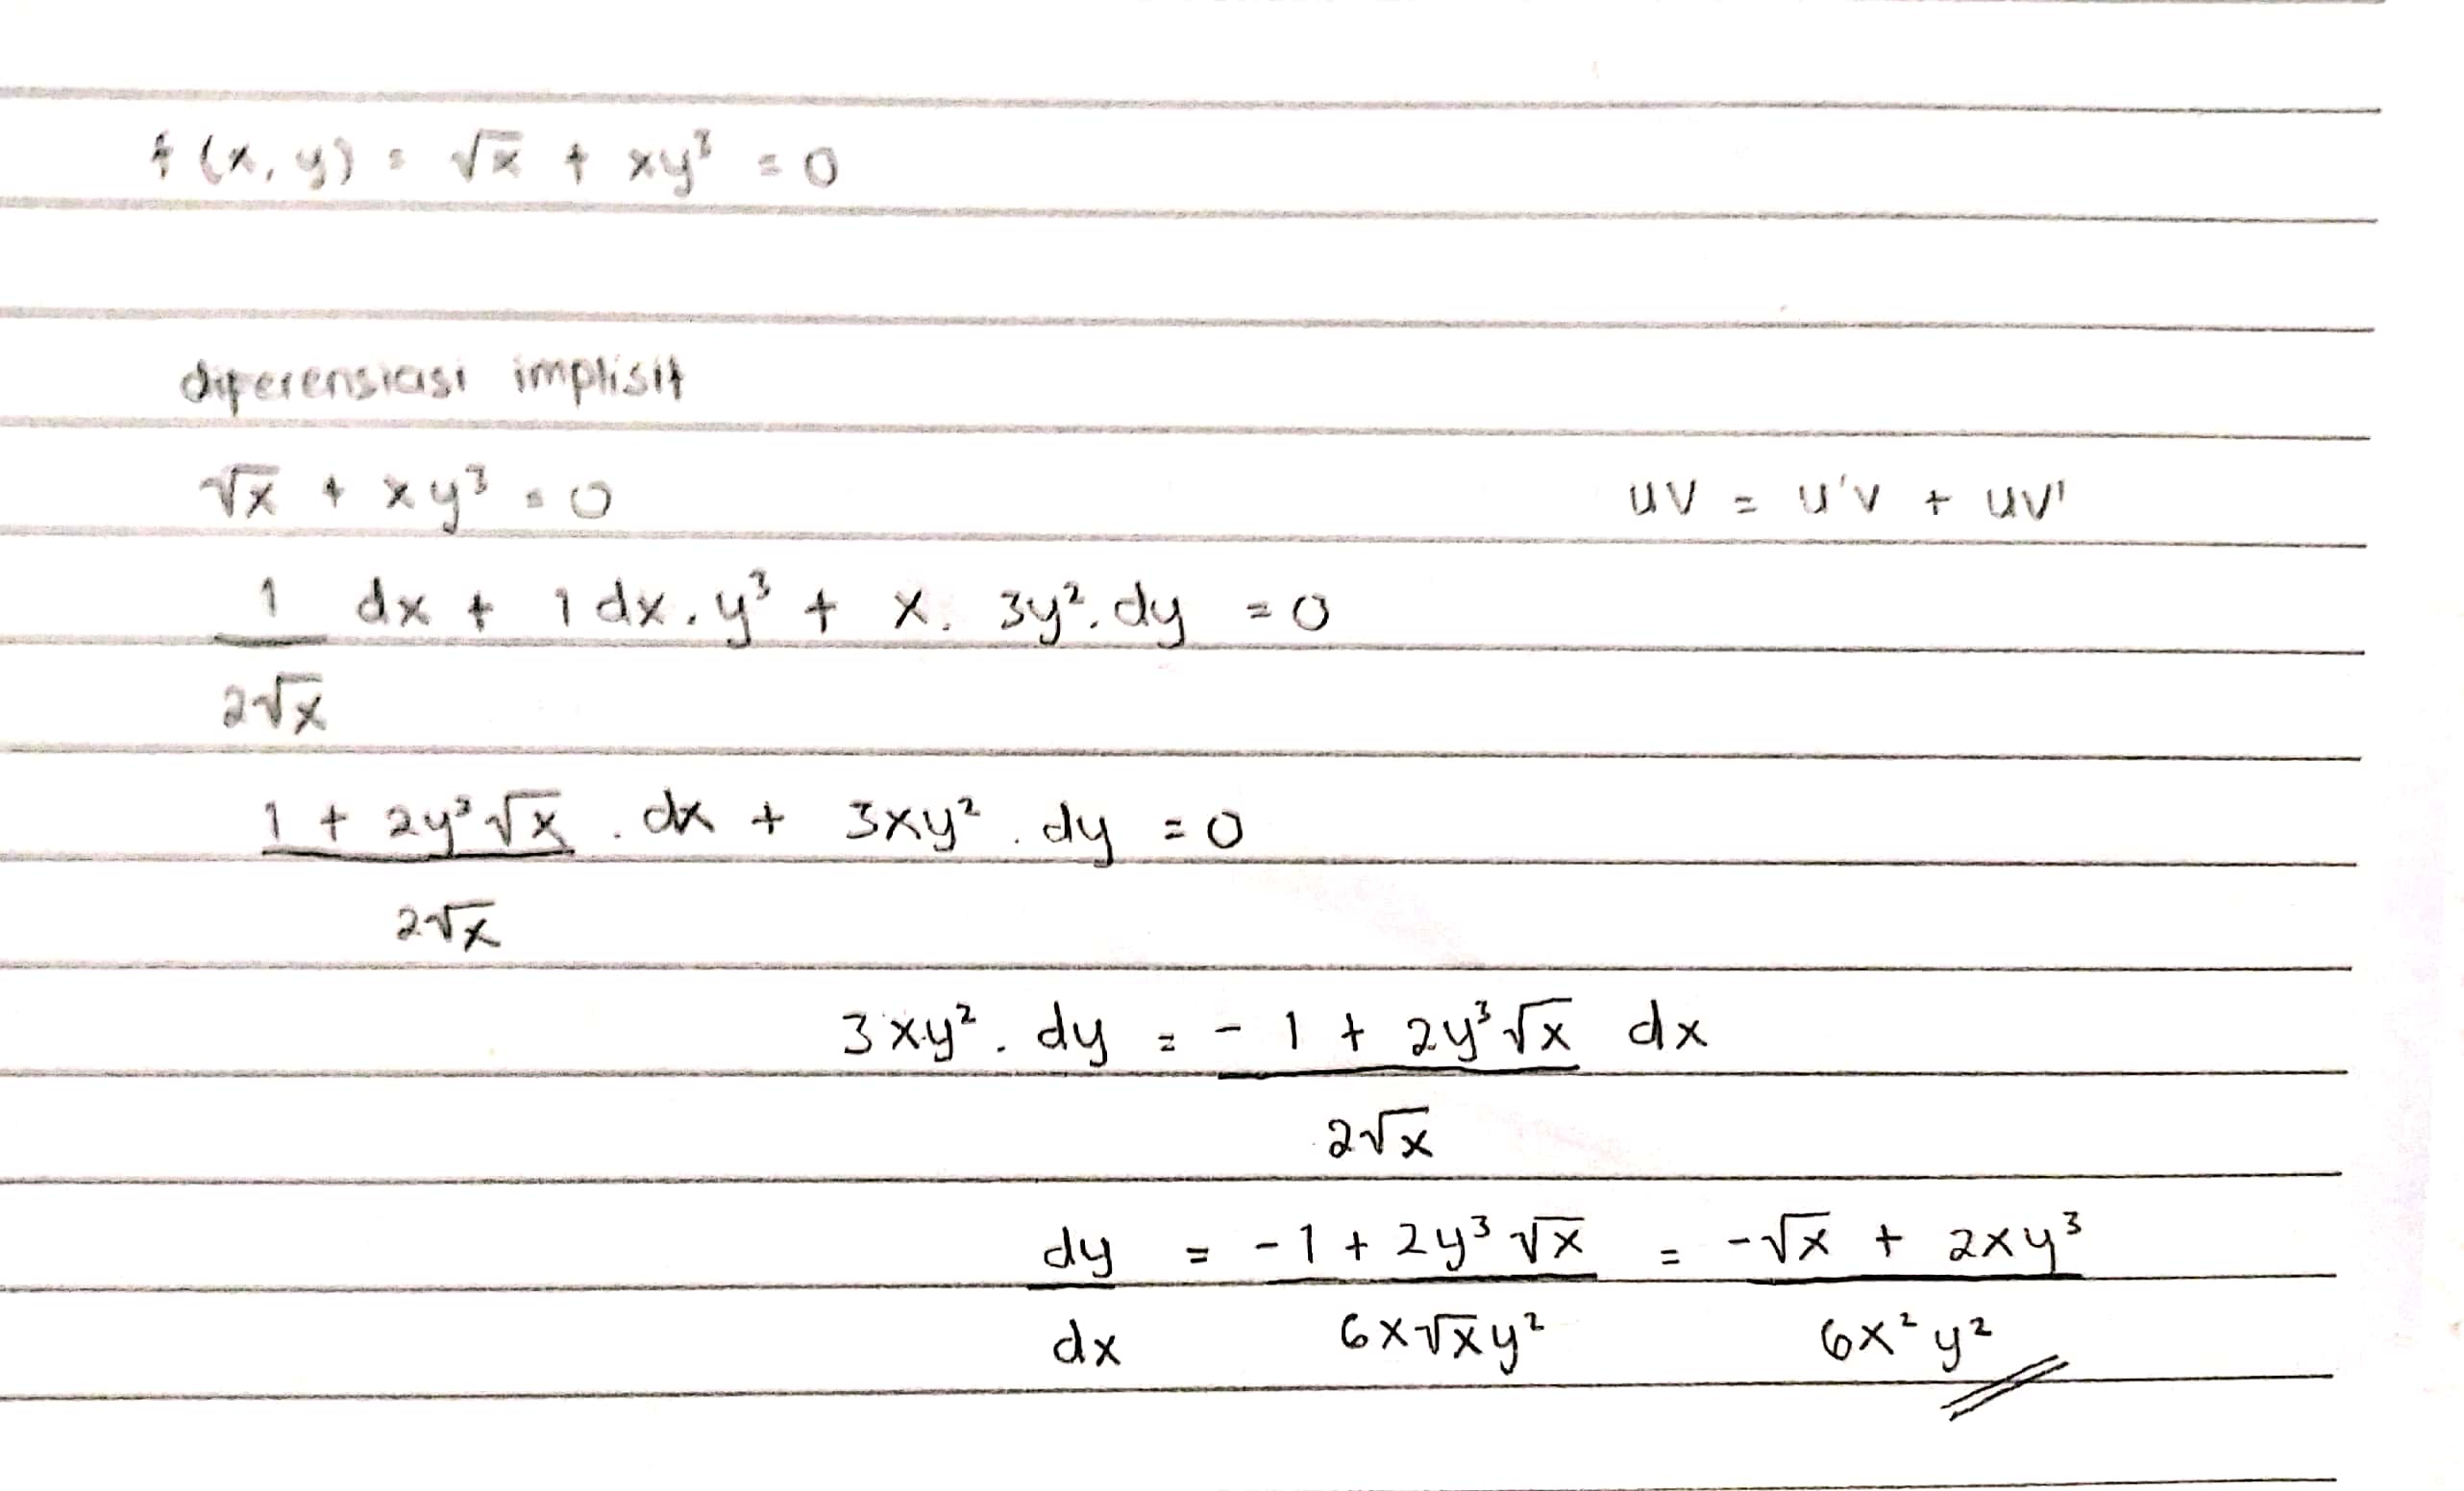 f (x, y) = √x + xy³ = 0
diferensiasi implisit
√x + xy³ = 0
uv = u'v + uv'
1/2√x dx + 1 dx . y³ + x . 3y² . dy = 0
1 + 2y³√x/2√x . dx + 3xy² . dy = 0
3xy² . dy = - 1 + 2y³√x/2√x dx
dy/dx = -1 + 2y³√x/6x√xy² = -√x + 2xy³/6x²y²